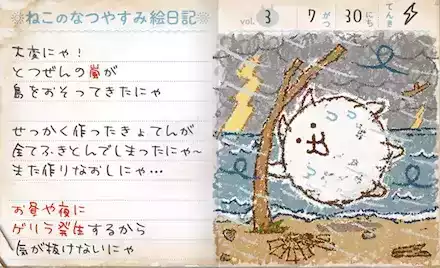 ねこのなつやすみ絵日記
vol. 3 7がつ 30にち てんき
大変にゃ！
とつぜんの嵐が
島をおそってきたにゃ
せっかく作ったきょてんが
全てふきとんでしまったにゃ~
また作りなおしにゃ…
お昼や夜に
ゲリラ発生するから
気が抜けないにゃ